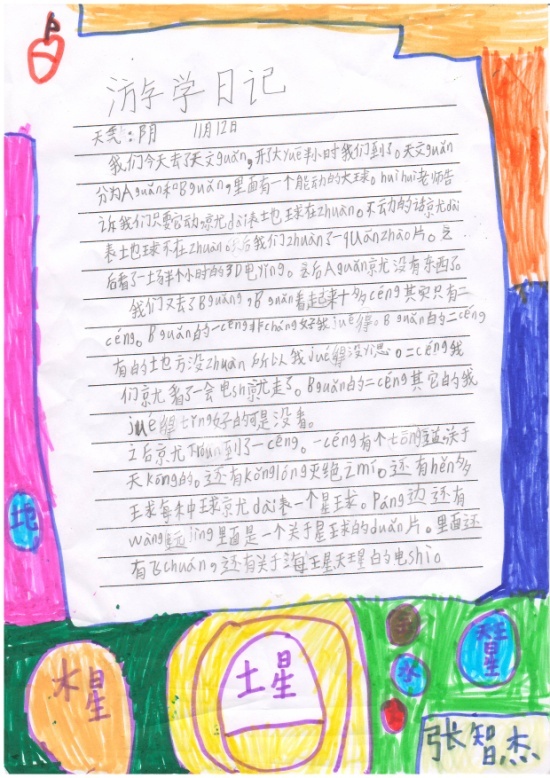 游学日记
天气:阴 11月12日
我们今天去了天文guǎn,开了大yuē半小时我们到了。天文guǎn
分为Aguǎn和Bguǎn,里面有一个能动的大球。huīhuī老师告
诉我们只要它动京尤dài表土也球在zhuàn。不动的话京尤dài
表土也球不在zhuàn。然后我们zhuàn了一quān zhào片。之
后看了一土昜半个小时的3D电yǐng。之后Aguǎn京尤没有东西了。
我们又去了Bguǎn,Bguǎn看起来十多céng其实只有二
céng。Bguǎn的一céng非cháng好我jué得。Bguǎn的二céng
有的土也方没zhuān所以我jué得没yì思。二céng我
们京尤看了一会电shì京尤走了。Bguǎn的二céng其它的我
jué得tǐng好的可是没看。
之后京尤到了一céng。一céng有个关于
天kōng的。还有kǒnglóng灭绝之mí。还有hěn多
王求每禾中王求京尤dài表一个星王求。páng边还有
wàng远jìng里面是一个关于星王求的duǎn片。里面还
有飞chuán,还有关于海王星天王星的电shì。
地
水星
土星
水
天王星
张智杰